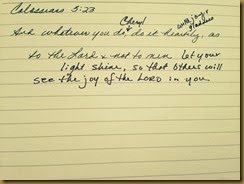 Colossians 3:23
Cheryl
with joy & gladness
And whatever you do, do it heartily, as
to the Lord & not to men let your
light shine, so that others will
see the joy of the LORD in you.